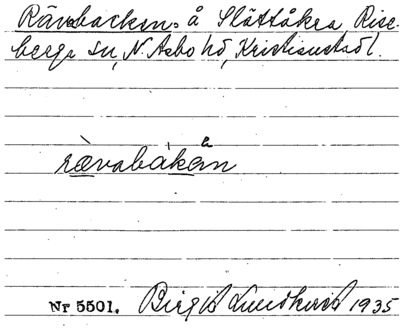 Rävabacken: å Slättåkra Rise-
berga sn, N. Åsbo hd, Kristianstad l.
rævabakan
å
Nr 5501. Birgit Lundkvist 1935